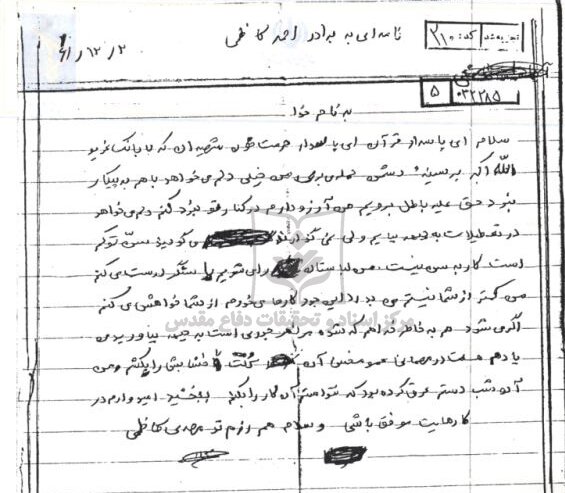 تجزیه شد کد: ۲۱۰
نامه‌ای به برادر احمد کاظمی
۶۱/۱۲/۲
۰۳۲۲۸۵ ۵
به نام خدا
سلام ای پاسدار قرآن ای پاسدار حرمت خون شهیدان که با بانگ
الله اکبر بر سینهٔ دشمن حمله می‌بری من خیلی دلم می‌خواهد با هم به پیکار
نبرد حق علیه باطل برویم من آرزو دارم در کنار تو نبرد کنم دلم می‌خواهد
در تعطیلات به جبهه بیایم ولی نمی‌گذارند می‌گویند سن تو کم
است کار به سن نیست من لباسهای را می‌شویم یا سنگر درست می‌کنم
من کمتر از شما نیستم من به درد این جور کارها می‌خورم از شما خواهش می‌کنم
اگر می‌شود هم به خاطر خواهم که شده مرا هر جوری است به جبهه بیاورید من
یادم هست در مهمانی عمو محسن آن گفت
آن شب دستم عرق کرده بود که نتوانستم آن کار را بکنم ببخشید امیدوارم در
کارهایت موفق باشی و سلام هم رزم تو مهدی کاظمی
مرکز اسناد و تحقیقات دفاع مقدس